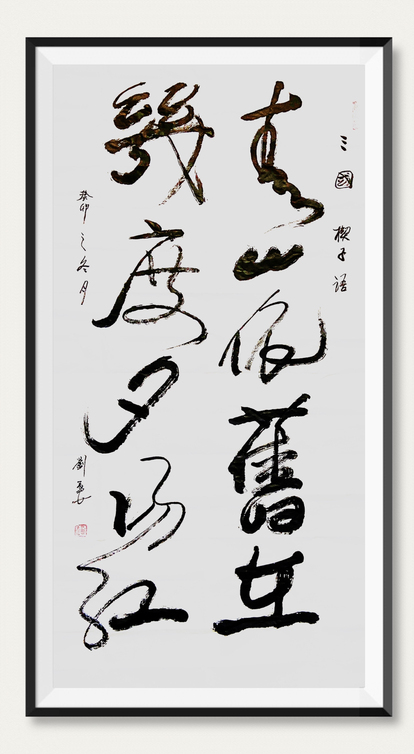 三國 楔子語
青山依舊在
幾度夕陽紅
癸卯之冬月
劉